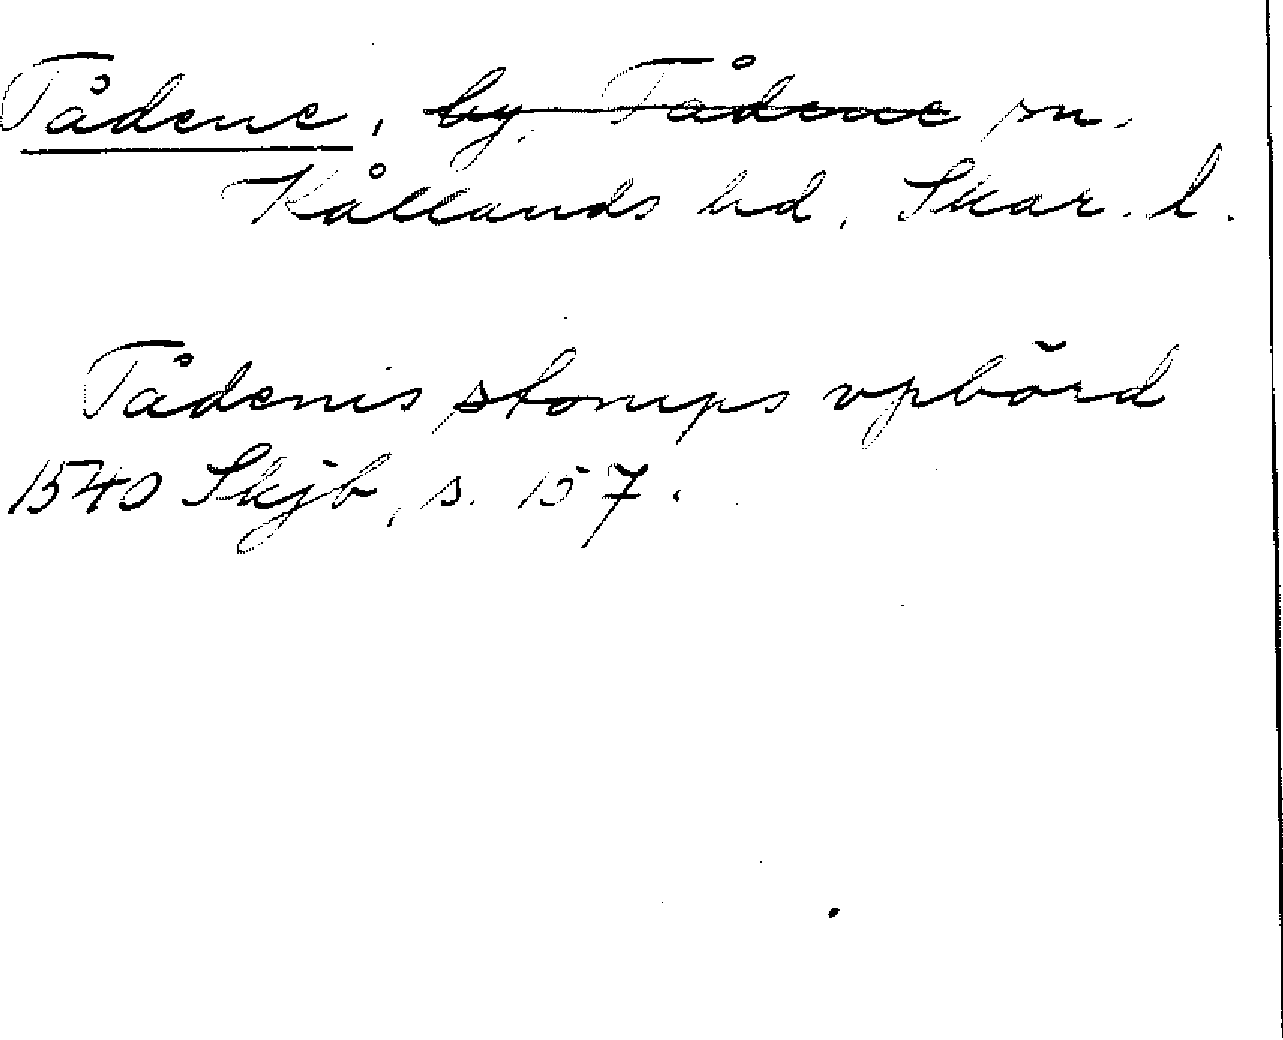 Tådene, by, Tådene sn.
Kållands hd, Skar. l.
Tådenis stomps vpbörd
1540 Skjb, s. 157.